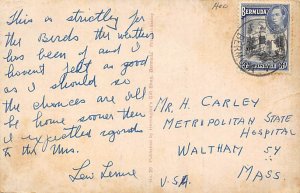 This is strictly for
the Birds the weather
has been of and I
havent felt as good
as I should so
the chances are ill
be home sooner then
I expected regards
to the Mrs.
Lew
BERMUDA
MR. H. CARLEY
METROPOLITAN STATE
HOSPITAL
WALTHAM 54
MASS.
U.S.A.